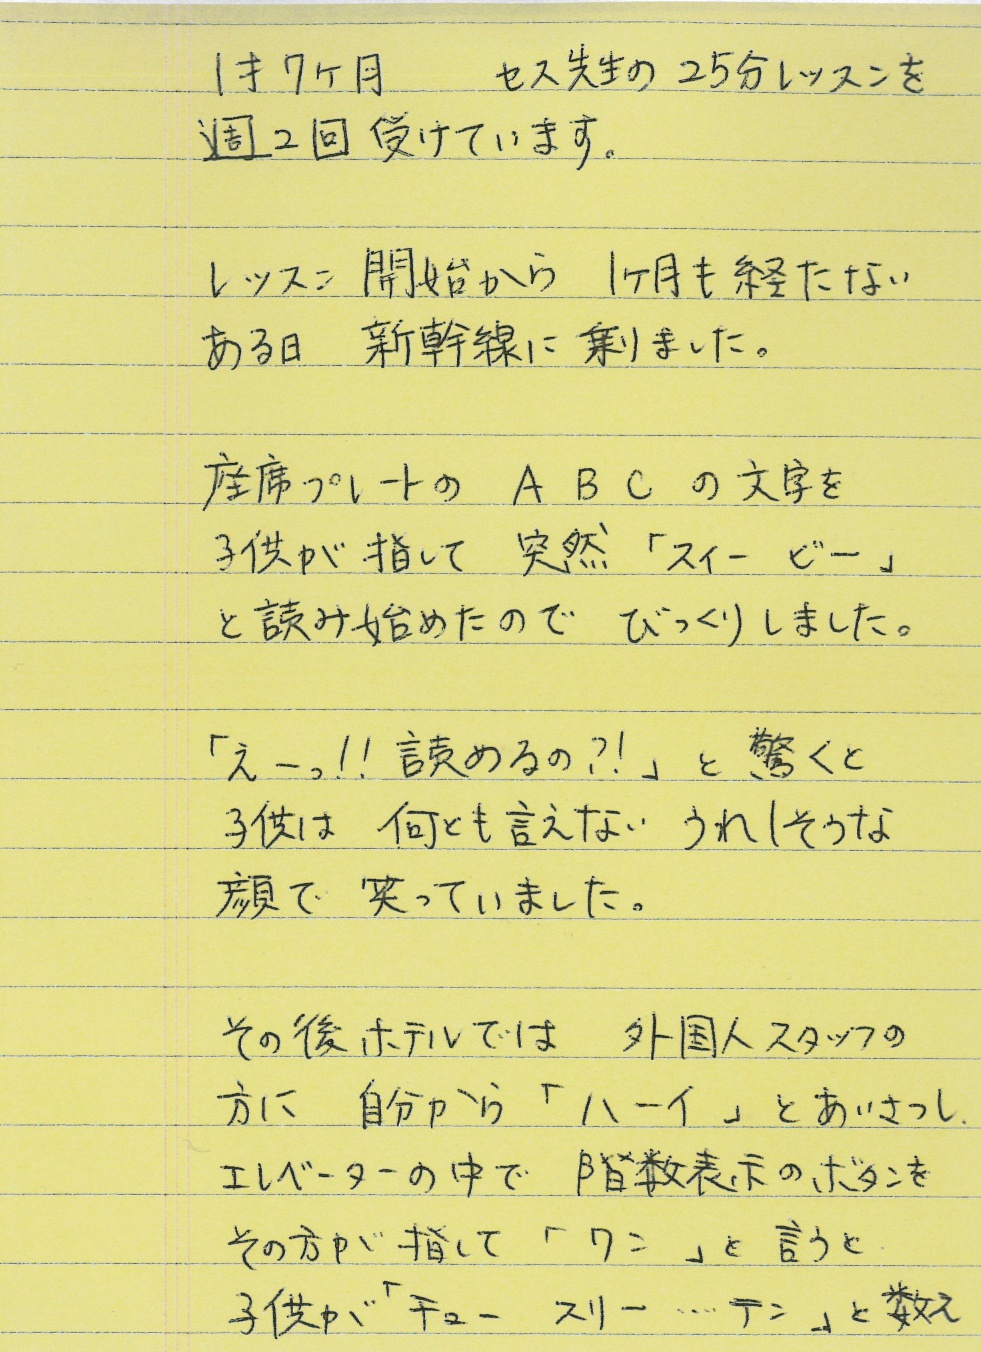 1才7ヶ月 セス先生の25分レッスンを
週2回受けています。
レッスン開始から 1ヶ月も経たない
ある日 新幹線に乗りました。
座席プレートの A B C の文字を
子供が指して 突然「スィー ビー」
と読み始めたので びっくりしました。
「えーっ!! 読めるの?!」と驚くと
子供は 何とも言えない うれしそうな
顔で 笑っていました。
その後ホテルでは 外国人スタッフの
方に 自分から「ハーイ」とあいさつし、
エレベーターの中で 階数表示のボタンを
その方が指して「ワン」と言うと
子供が「チュー スリー …テン」と数え